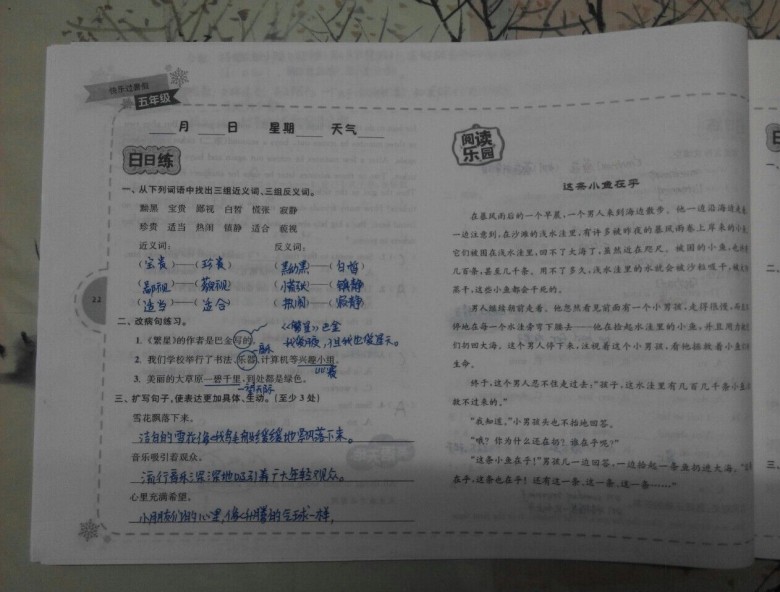 快乐过寒假
五年级
月 日 星期 天气
日日练
一、从下列词语中找出三组近义词、三组反义词。
黝黑 宝贵 鄙视 白皙 慌张 寂静
珍贵 适当 热闹 镇静 适合 藐视
近义词： 反义词：
(宝贵)——(珍贵) (黝黑)——(白皙)
(鄙视)——(藐视) (慌张)——(镇静)
(适当)——(适合) (热闹)——(寂静)
22
二、改病句练习。
《繁星》巴金
1.《繁星》的作者是巴金写的。
2. 我们学校举行了书法、乐器、计算机等兴趣小组。
比赛
3. 美丽的大草原一碧千里，到处都是绿色。
三、扩写句子，使表达更加具体、生动。(至少 3 处)
雪花飘落下来。
洁白的雪花像鹅毛般缓缓地飘落下来。
音乐吸引着观众。
流行音乐深深地吸引着广大年轻观众。
心里充满希望。
小朋友们的心里，像升腾的气球一样，
阅读乐园
这条小鱼在乎
在暴风雨后的一个早晨，一个男人来到海边散步。他一边沿海边走着，
一边注意到，在沙滩的浅水洼里，有许多被昨夜的暴风雨卷上岸来的小鱼。
它们被困在浅水洼里，回不了大海了，虽然近在咫尺。被困的小鱼，也许有
几百条，甚至几千条。用不了多久，浅水洼里的水就会被沙粒吸干，被太阳
蒸干，这些小鱼都会干死的。
男人继续朝前走着。他忽然看见前面有一个小男孩，走得很慢，而且不
停地在每一个水洼旁弯下腰去——他在捡起水洼里的小鱼，并且用力把它
们扔回大海。这个男人停下来，注视着这个小男孩，看他拯救着小鱼们的
生命。
终于，这个男人忍不住走过去：“孩子，这水洼里有几百几千条小鱼，你
救不过来的。”
“我知道。”小男孩头也不抬地回答。
“哦？你为什么还在扔？谁在乎呢？”
“这条小鱼在乎！”男孩儿一边回答，一边拾起一条鱼扔进大海。“这条
在乎，这条也在乎！还有这一条、这一条、这一条……”